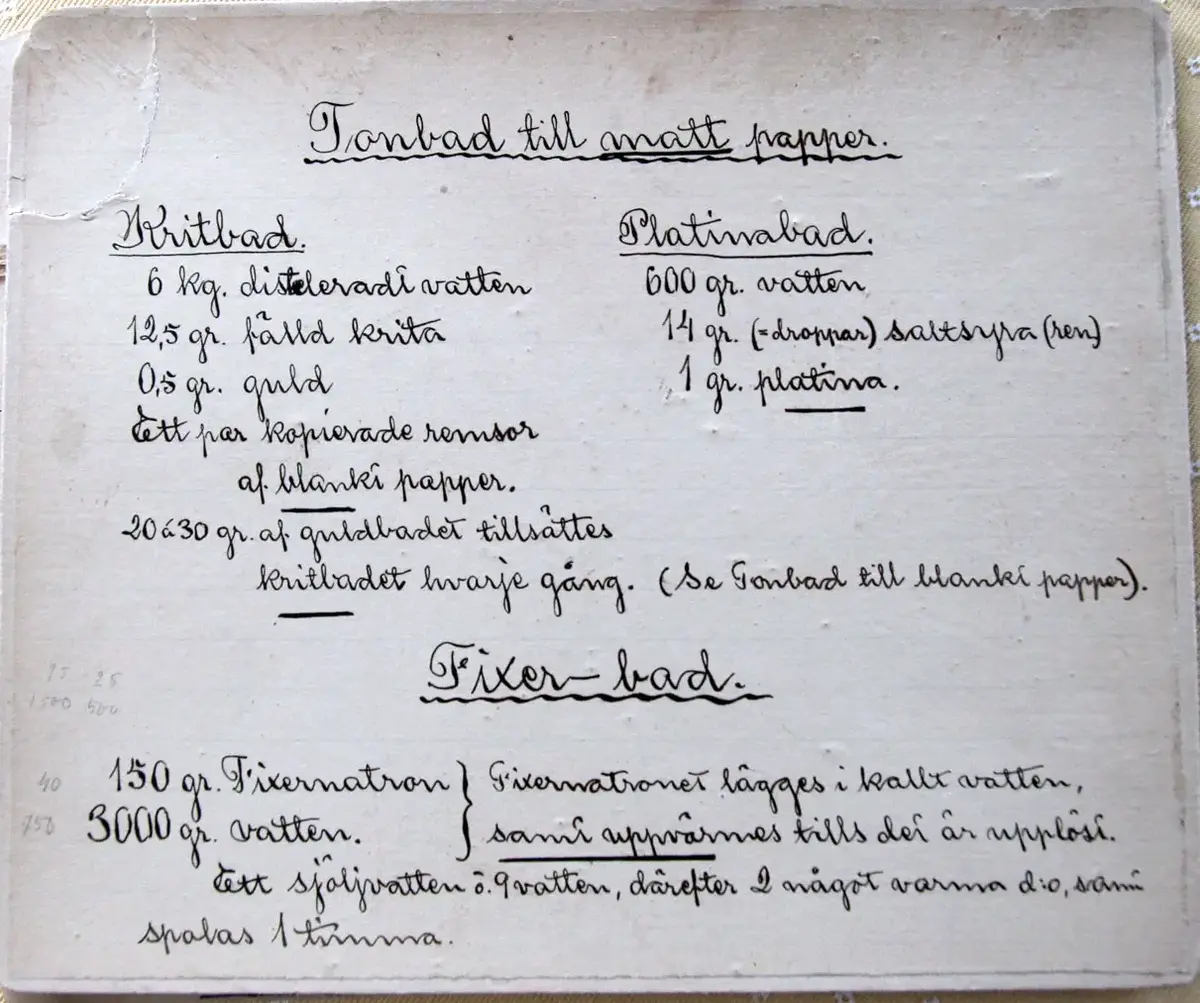 Tonbad till matt papper.
Kritbad.
6 kg. distileradt vatten
12,5 gr. fälld krita
0,5 gr. guld
Ett par kopierade remsor
af blankt papper.
20 á 30 gr. af guldbadet tillsättes
kritbadet hvarje gång. (Se Tonbad till blankt papper).
Platinabad.
600 gr. vatten
14 gr. (=droppar) saltsyra (ren)
1 gr. platina.
Fixer-bad.
15 25
1500 500
40
750
150 gr. Fixernatron
3000 gr. vatten.
Fixernatronet lägges i kallt vatten,
samt uppvärmes tills det är upplöst.
Ett sjöljvatten ö. 9 vatten, därefter 2 något varma d:o, samt
spolas 1 timma.